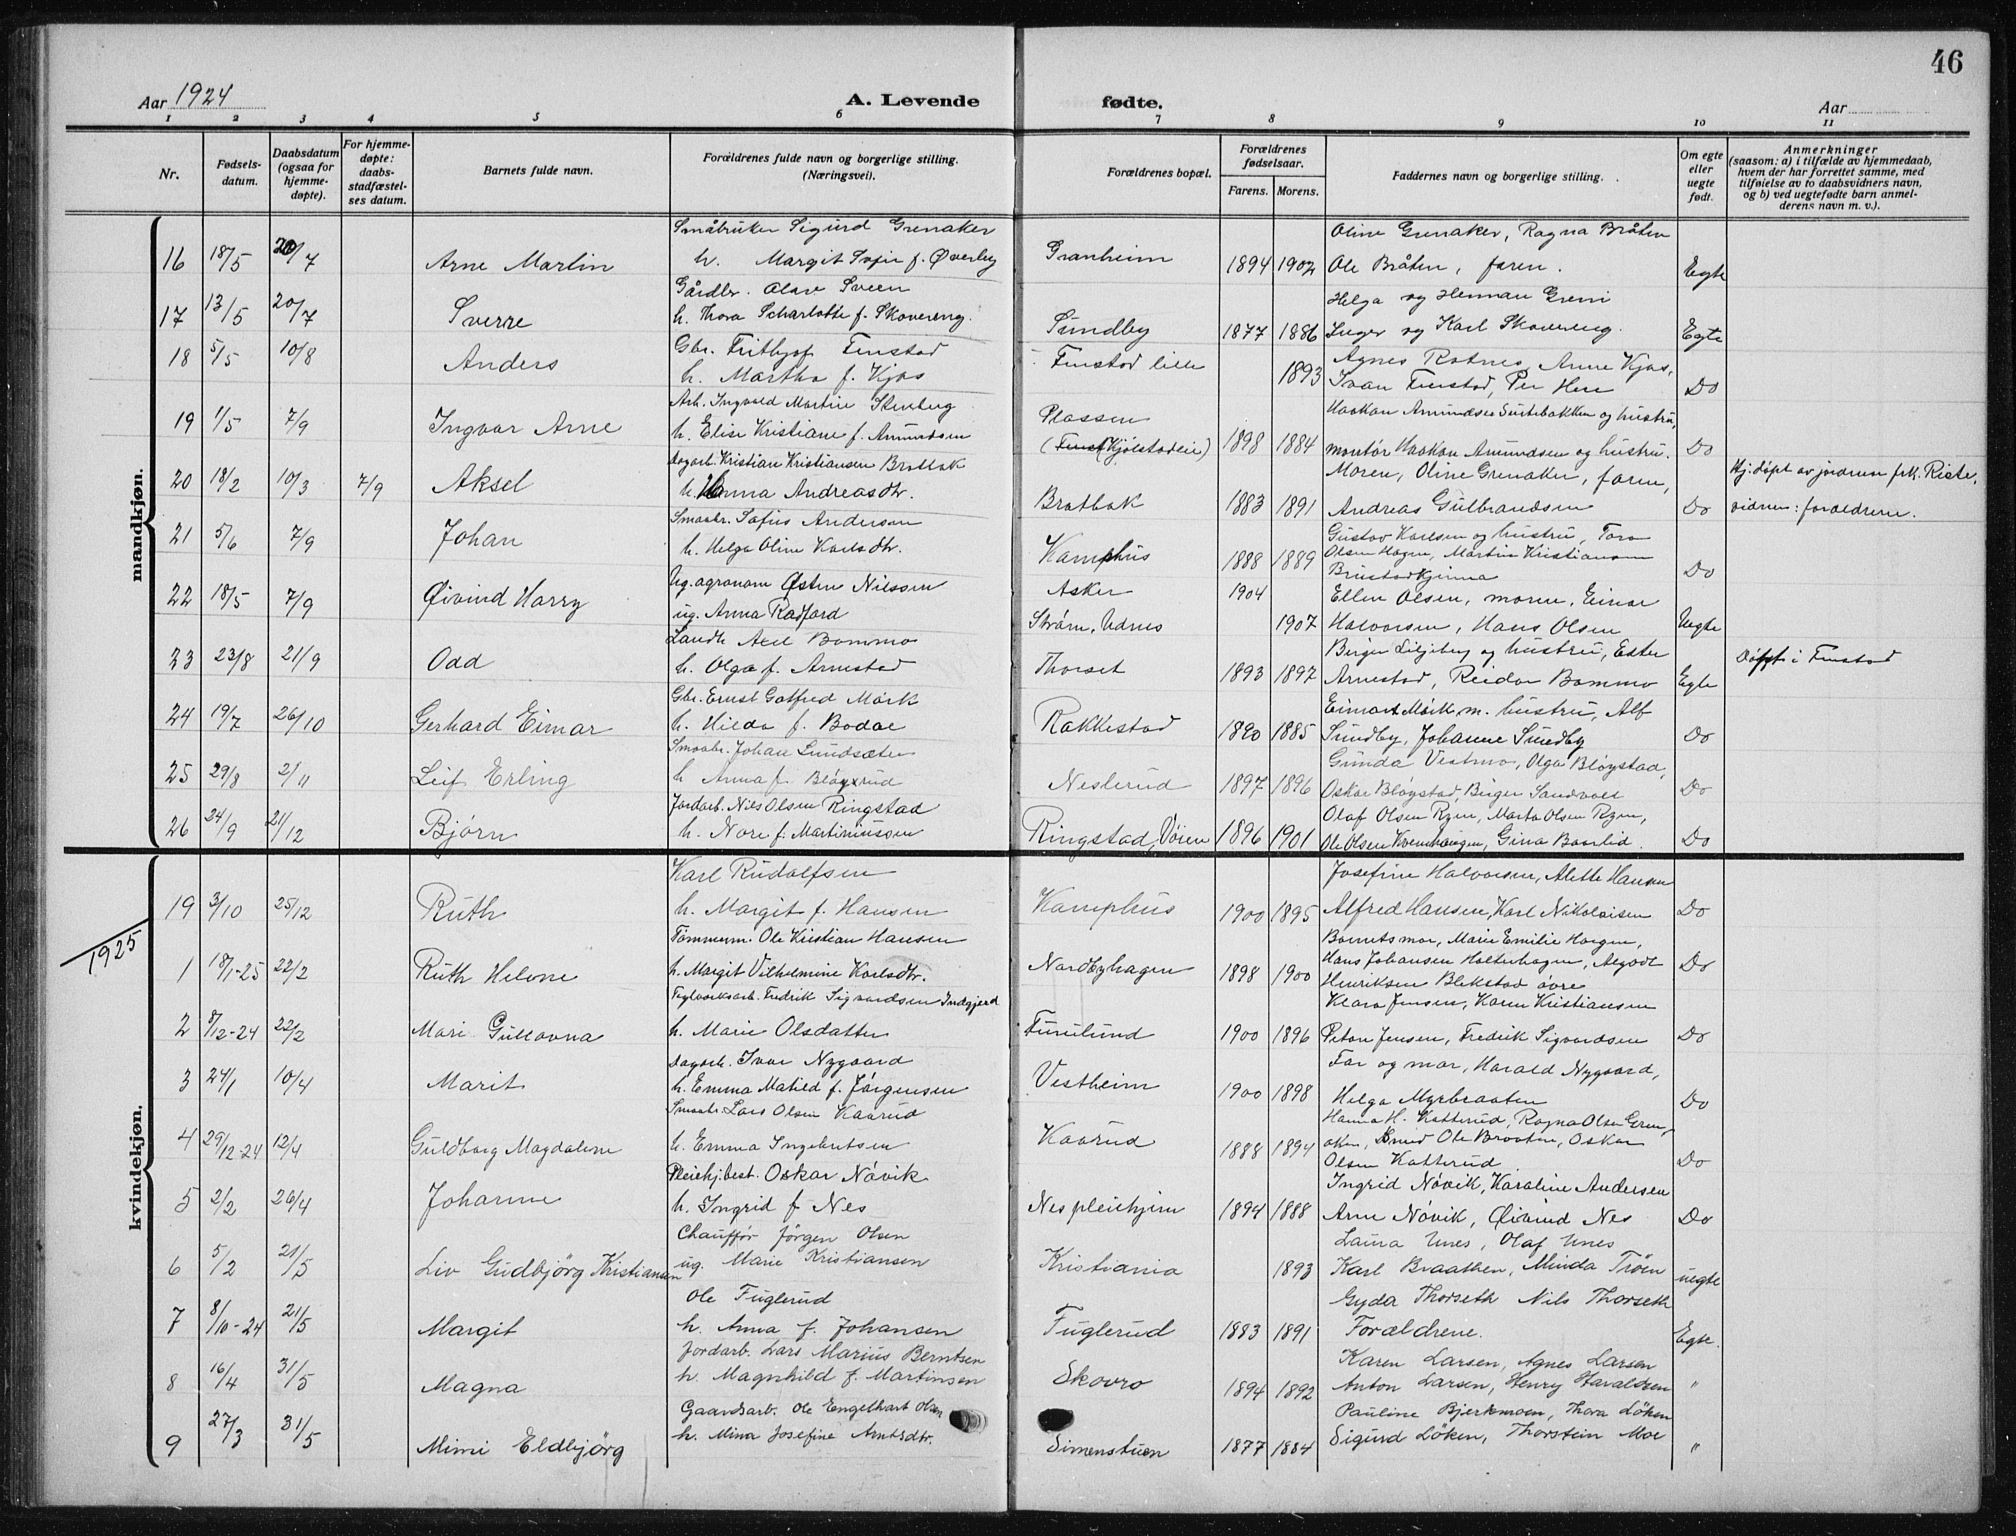 46
Aar 1924
A. Levende fødte.
Aar
1 2 3 4 5 6 7 8 9 10 11
Nr.
Fødsels-datum.
Daabsdatum (ogsaa for hjemme-døpte).
For hjemme-døpte: daabs-stadfæstel-ses datum.
Barnets fulde navn.
Forældrenes fulde navn og borgerlige stilling. (Næringsvei).
Forældrenes bopæl.
Forældrenes fødselsaar.
Farens. Morens.
Faddernes navn og borgerlige stilling.
Om egte eller uegte født.
Anmerkninger
(saasom: a) i tilfælde av hjemmedaab, hvem der har forrettet samme, med tilføielse av to daabsvidners navn, og b) ved uegtefødte barn anmel-derens navn m. v.).
mandkjøn.
Småbruker Sigurd Grenaker Oline Grenaker, Ragna Bråten
16 18/5 20/7 Arne Martin h. Margit Sofie f. Øverby Granheim 1894 1902 Ole Bråten, faren. Egte
Gårdbr. Olav Sveen Helga og Herman Greni
17 13/5 20/7 Sverre h. Thora Scharlotte f. Skovereng. Sundby 1877 1886 Inger og Karl Skovereng. Egte
18 5/5 10/8 Anders Gbr. Frithjof Finstad Finstad lille Agnes Rotnes, Anne Kjos,
h. Martha f. Kjos 1893 Ivan Finstad, Per Here Do
19 1/5 7/9 Ingvar Arne Arb. Ingvald Martin Skreberg Plassen Haakon Amundsen og hustru,
h. Elise Kristiane f. Amundsen (Kjølstadeie) 1898 1884 montør Haakon Amundsen og hustru. Do
20 18/2 10/3 7/9 Aksel Dagarb. Kristian Kristiansen Bratbak Moren, Oline Grenaker, faren, Hj. døpt av jordmor frk. Riste,
h. Hanna Andreasdtr. Bratbak 1883 1891 Andreas Gulbrandsen Do vidner: forældrene.
21 5/6 7/9 Johan Smaabr. Sofus Andersen Gustav Karlsen og hustru, Tora
h. Helga Oline Karlsdtr. Kamphus 1888 1889 Olsen Hagen, Martin Kristiansen Do
22 18/5 7/9 Øivind Harry Ug. agronom Østen Nilssen Asker 1904 Ellen Olsen, moren, Einar
ug. Anna Radford Strøm, Udnes 1907 Halvorsen, Hans Olsen Uegte
23 23/8 21/9 Odd Landh. Axel Bommo Birger Liljeberg og hustru, Ester Døpt i Finstad
h. Olga f. Arnestad Thorset 1893 1897 Arnestad, Reidar Bommo Egte
24 19/7 26/10 Gerhard Eimar Gbr. Ernst Gotfred Mørk Eimart Mørk m. hustru, Alf
h. Hilda f. Bodal Rakkestad 1890 1885 Sundby, Johanne Sundby Do
25 29/8 2/11 Leif Erling Smaabr. Johan Lundsæter Gunda Vestmo, Olga Bløystad,
h. Anna f. Nesterud 1897 1896 Oskar Bløystad, Birger Sandvold Do
26 24/9 21/12 Bjørn Jordarb. Nils Olsen Ringstad Olaf Olsen Ryen, Marta Olsen Ryen,
h. Nora f. Martiniussen Ringstad, Vøien 1896 1901 Ole Olsen Kvernhaugen, Gina Baarlid. Do
kvindekjøn.
Karl Rudolfsen Josefine Halvorsen, Alette Hansen
19 3/10 25/12 Ruth h. Margit f. Hansen Kamphus 1900 1895 Alfred Hansen, Karl Nikolaisen Do
1925
Tømmerm. Ole Kristian Hansen Barnets mor, Marie Emilie Haagen,
1 18/1-25 22/2 Ruth Helene h. Margit Vilhelmine Karlsdtr. Nordbyhagen 1898 1900 Hans Johansen Holterhagen, Algodt Do
Henriksen Blekstad øvre
Teglverksarb. Fredrik Sigvardsen Indgjerd Klara Jensen, Karen Kristiansen
2 8/12-24 22/2 Mari Gustavna h. Marie Olsdatter Furulund 1900 1896 Petom Jensen, Fredrik Sigvardsen Do
3 24/1 10/4 Marit Dagarb. Ivar Nygaard Vestheim Far og mor, Harald Nygaard,
h. Emma Matild f. Jørgensen 1900 1898 Helga Myrbraaten Do
4 29/12-24 12/4 Guldborg Magdalene Smaabr. Lars Olsen Kaarud Hanna H. Katterud, Ragna Olsen Gren-
h. Emma Ingebretsen Kaarud 1888 1894 aker, Smed Ole Braaten, Oskar
Olsen Katterud Do
5 2/2 26/4 Johanne Pleiehj.best. Oskar Nøvik Ingrid Nøvik, Karoline Andersen
h. Ingrid f Nes Nes pleiehjem 1894 1888 Arne Nøvik, Øivind Nes Do
6 5/2 21/5 Liv Gudbjörg Kristiansen Chauffør Jørgen Olsen Laura Unes, Olaf Unes
ug. Marie Kristiansen Kristiania 1893 Karl Braathen, Minda Trøen uegte
7 8/10-24 21/5 Margit Ole Fuglerud Gyda Thorseth Nils Thorseth
h. Anna f. Johansen Fuglerud 1883 1891 Forældrene. Egte.
8 16/4 31/5 Magna Jordarb. Lars Marius Berntsen Karen Larsen, Agnes Larsen
h. Magnhild f. Martinsen Skovro 1894 1892 Anton Larsen, Henry Havaldsen "
9 27/3 31/5 Mimi Eldbjörg Gaardsarb. Ole Engelhart Olsen Pauline Bjerkmoen, Thora Løken
h. Mina Josefine Arntsdtr. Simenstuen 1877 1884 Sigurd Løken, Thorstein Moe "